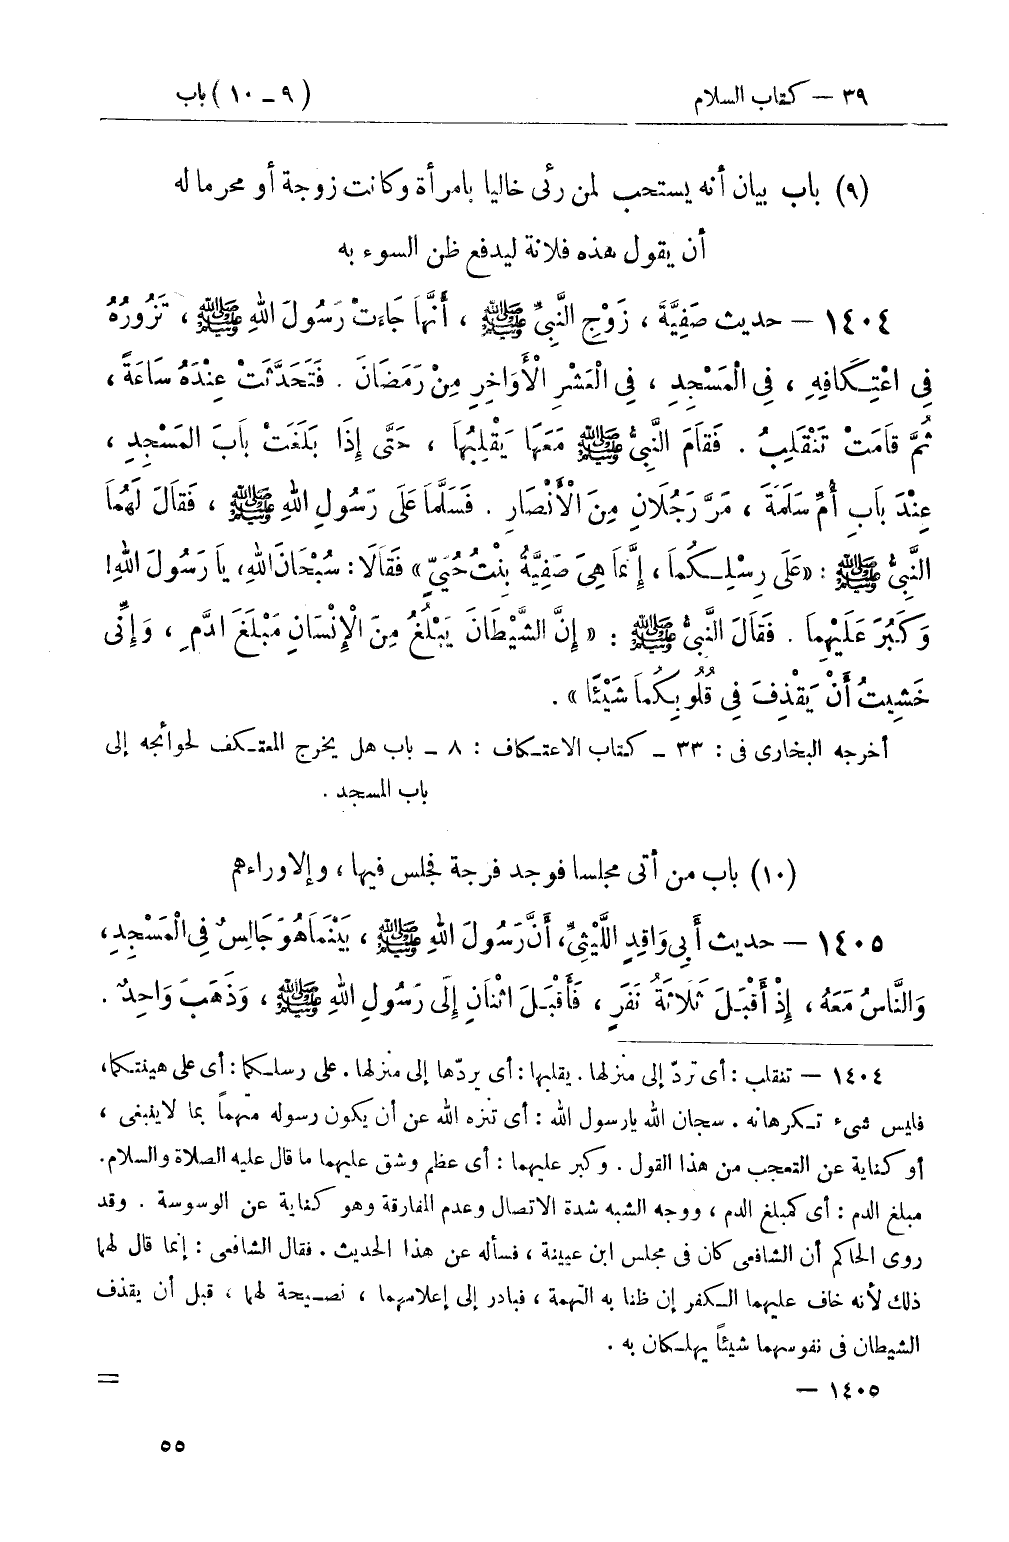 ٣٩ – كتاب السلام (٩ – ١٠) باب
(٩) باب بيان أنه يستحب لمن رئى خاليا بامرأة وكانت زوجة أو محرما له
أن يقول هذه فلانة ليدفع ظن السوء به
١٤٠٤ – حديث صَفِيَّةَ ، زَوْجِ النَّبِيِّ ﷺ ، أَنَّهَا جَاءَتْ رَسُولَ اللهِ ﷺ ، تَزُورُهُ
فِي اعْتِكَافِهِ ، فِي الْمَسْجِدِ ، فِي الْعَشْرِ الْأَوَاخِرِ مِنْ رَمَضَانَ . فَتَحَدَّثَتْ عِنْدَهُ سَاعَةً ،
ثُمَّ قَامَتْ تَنْقَلِبُ . فَقَامَ النَّبِيُّ ﷺ مَعَهَا يَقْلِبُهَا ، حَتَّى إِذَا بَلَغَتْ بَابَ الْمَسْجِدِ ،
عِنْدَ بَابِ أُمِّ سَلَمَةَ ، مَرَّ رَجُلَانِ مِنَ الْأَنْصَارِ . فَسَلَّمَا عَلَى رَسُولِ اللهِ ﷺ ، فَقَالَ لَهُمَا
النَّبِيُّ ﷺ : «عَلَى رِسْلِكُمَا ، إِنَّمَا هِيَ صَفِيَّةُ بِنْتُ حُيَيٍّ» فَقَالَا : سُبْحَانَ اللهِ، يَا رَسُولَ اللهِ!
وَكَبُرَ عَلَيْهِمَا . فَقَالَ النَّبِيُّ ﷺ : «إِنَّ الشَّيْطَانَ يَبْلُغُ مِنَ الْإِنْسَانِ مَبْلَغَ الدَّمِ ، وَإِنِّي
خَشِيتُ أَنْ يَقْذِفَ فِي قُلُوبِكُمَا شَيْئًا» .
أخرجه البخارى فى : ٣٣ – كتاب الاعتكاف : ٨ – باب هل يخرج المعتكف لحوائجه إلى
باب المسجد .
(١٠) باب من أتى مجلسا فوجد فرجة فجلس فيها ، وإلا وراءهم
١٤٠٥ – حديث أَبِي وَاقِدٍ اللَّيْثِيِّ، أَنَّ رَسُولَ اللهِ ﷺ ، بَيْنَمَا هُوَ جَالِسٌ فِي الْمَسْجِدِ،
وَالنَّاسُ مَعَهُ ، إِذْ أَقْبَلَ ثَلَاثَةُ نَفَرٍ ، فَأَقْبَلَ اثْنَانِ إِلَى رَسُولِ اللهِ ﷺ ، وَذَهَبَ وَاحِدٌ .
١٤٠٤ – تنقلب : أى تردّ إلى منزلها . يقلبها : أى يردّها إلى منزلها . على رسلكما : أى على هينتكما،
فليس شىء تكرهانه . سبحان الله يارسول الله : أى تنزه الله عن أن يكون رسوله متهماً بما لاينبغى ،
أو كناية عن التعجب من هذا القول . وكبر عليهما : أى عظم وشق عليهما ما قال عليه الصلاة والسلام.
مبلغ الدم : أى كمبلغ الدم ، ووجه الشبه شدة الاتصال وعدم المفارقة وهو كناية عن الوسوسة . وقد
روى الحاكم أن الشافعى كان فى مجلس ابن عيينة ، فسأله عن هذا الحديث . فقال الشافعى : إنما قال لهما
ذلك لأنه خاف عليهما الكفر إن ظنا به التهمة ، فبادر إلى إعلامهما ، نصيحة لهما ، قبل أن يقذف
الشيطان فى نفوسهما شيئاً يهلكان به .
١٤٠٥ – =
٥٥